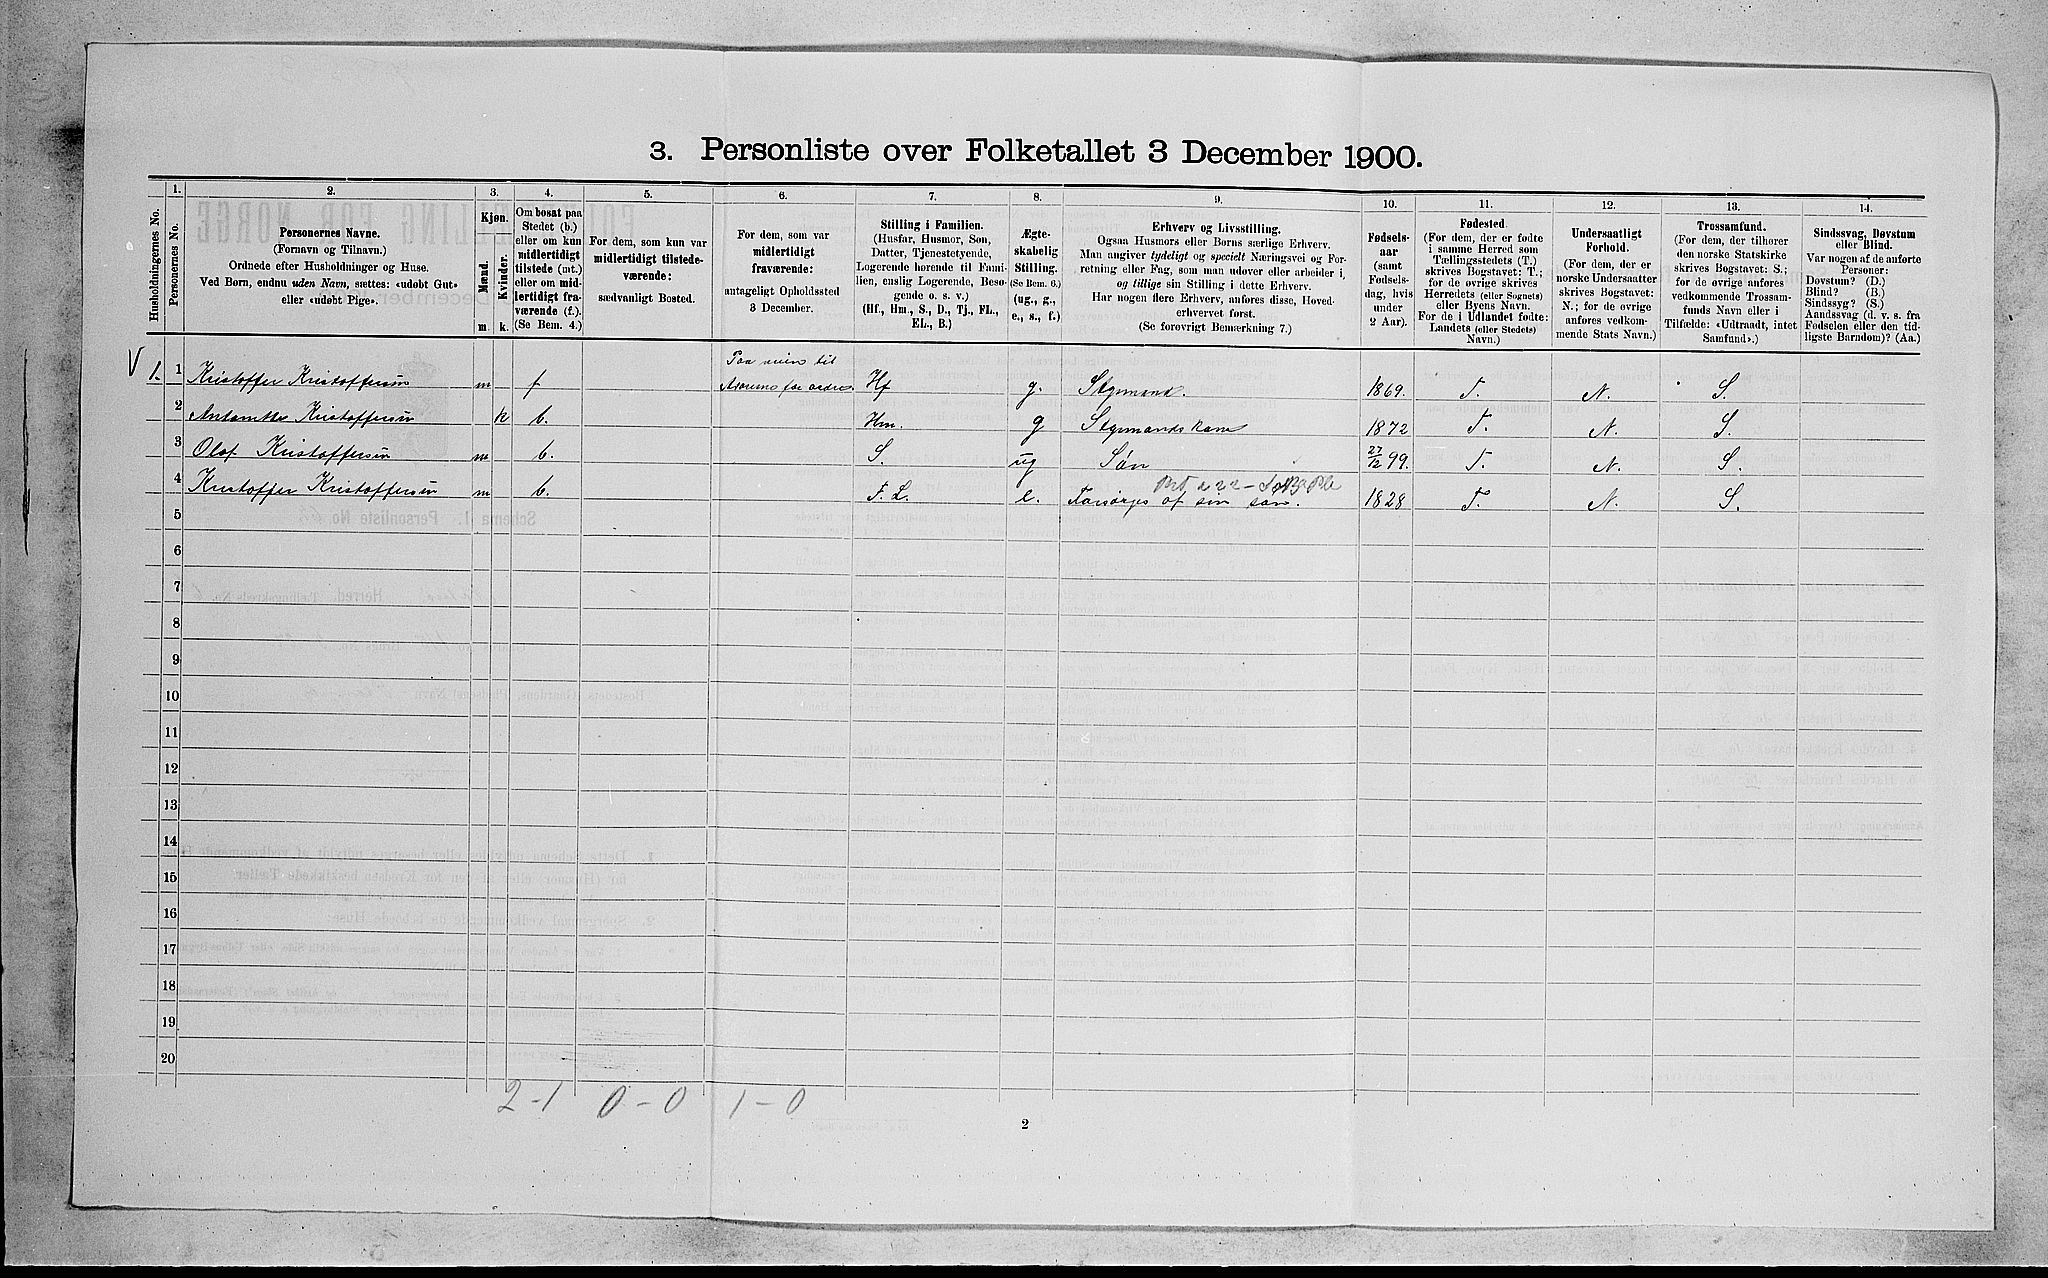 3. Personliste over Folketallet 3 December 1900.
Husholdningernes No.
1.
Personernes No.
2.
Personernes Navne.
(Fornavn og Tilnavn.)
Ordnede efter Husholdninger og Huse.
Ved Børn, endnu uden Navn, sættes: «udøbt Gut»
eller «udøbt Pige».
3.
Kjøn.
Mænd.
Kvinder.
m.
k.
4.
Om bosat paa
Stedet (b.)
eller om kun
midlertidigt
tilstede (mt.)
eller om mid-
lertidigt fra-
værende (f.).
(Se Bem. 4.)
5.
For dem, som kun var
midlertidigt tilstede-
værende:
sædvanligt Bosted.
6.
For dem, som var
midlertidigt
fraværende:
antageligt Opholdssted
3 December.
7.
Stilling i Familien.
(Husfar, Husmor, Søn,
Datter, Tjenestetyende,
Logerende hørende til Fami-
lien, enslig Logerende, Besø-
gende o. s. v.)
(Hf., Hm., S., D., Tj., FL.,
EL., B.)
8.
Ægte-
skabelig
Stilling.
(Se Bem. 6.)
(ug., g.,
e., s., f.)
9.
Erhverv og Livsstilling.
Ogsaa Husmors eller Børns særlige Erhverv.
Man angiver tydeligt og specielt Næringsvei og For-
retning eller Fag, som man udøver eller arbeider i,
og tillige sin Stilling i dette Erhverv.
Har nogen flere Erhverv, anføres disse, Hoved-
erhvervet først.
(Se forøvrigt Bemærkning 7.)
10.
Fødsels-
aar
(samt
Fødsels-
dag, hvis
under
2 Aar).
11.
Fødested.
(For dem, der er fødte
i samme Herred som
Tællingsstedets (T.)
skrives Bogstavet: T.;
for de øvrige skrives
Herredets (eller Sognets)
eller Byens Navn.
For de i Udlandet fødte:
Landets (eller Stedets)
Navn.)
12.
Undersaatligt
Forhold.
(For dem, der er
norske Undersaatter
skrives Bogstavet:
N.; for de øvrige
anføres vedkom-
mende Stats Navn.)
13.
Trossamfund.
(For dem, der tilhører
den norske Statskirke
skrives Bogstavet: S.;
for de øvrige anføres
vedkommende Trossam-
funds Navn eller i
Tilfælde: «Udtraadt, intet
Samfund».)
14.
Sindssvag, Døvstum
eller Blind.
Var nogen af de anførte
Personer:
Døvstum? (D.)
Blind? (B.)
Sindssyg? (S.)
Aandssvag (d. v. s. fra
Fødselen eller den tid-
ligste Barndom)? (Aa.)
V 1. 1 Kristoffer Kristoffersen m f Paa veien til for ordre Hf g. Stymand. 1869. T. N. S.
2 Kristoffersen k b. Hm. g Stymandskone 1872 T. N. S.
3 Olaf Kristoffersen m b. S. ug Søn 27/12 99. T. N. S.
4 Kristoffer Kristoffersen m b. F. L. e. Forsørges af sin søn. 1828 T. N. S.
5
6
7
8
9
10
11
12
13
14
15
16
17
18
19
20
2-1 0-0 1-0
2